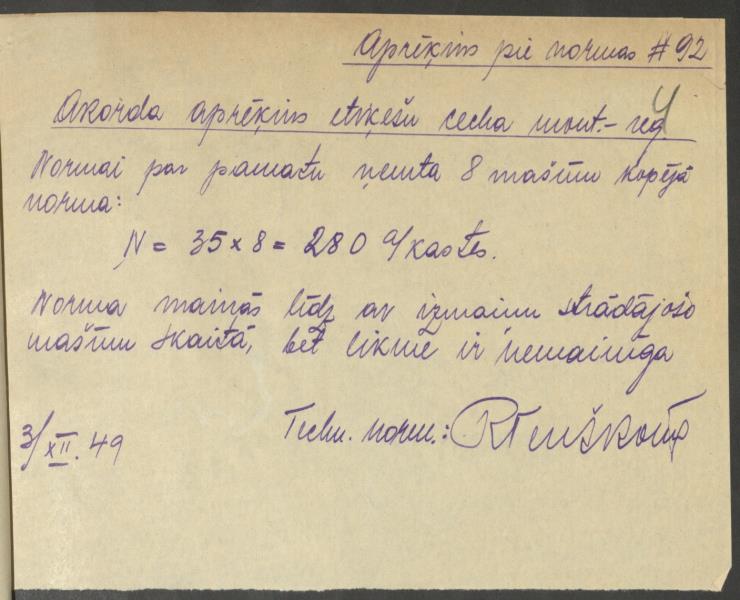 Aprēķins pie normas # 92
4
Akorda aprēķins etiķešu cecha mont.-reg.
Normai par pamatu ņemta 8 mašīnu kopējā
norma:
N = 35 x 8 = 280 kastes.
Norma mainās līdz ar izmaiņu strādājošo
mašīnu skaitā, bet likme ir nemainīga
3/XII. 49
Techn. norm.: